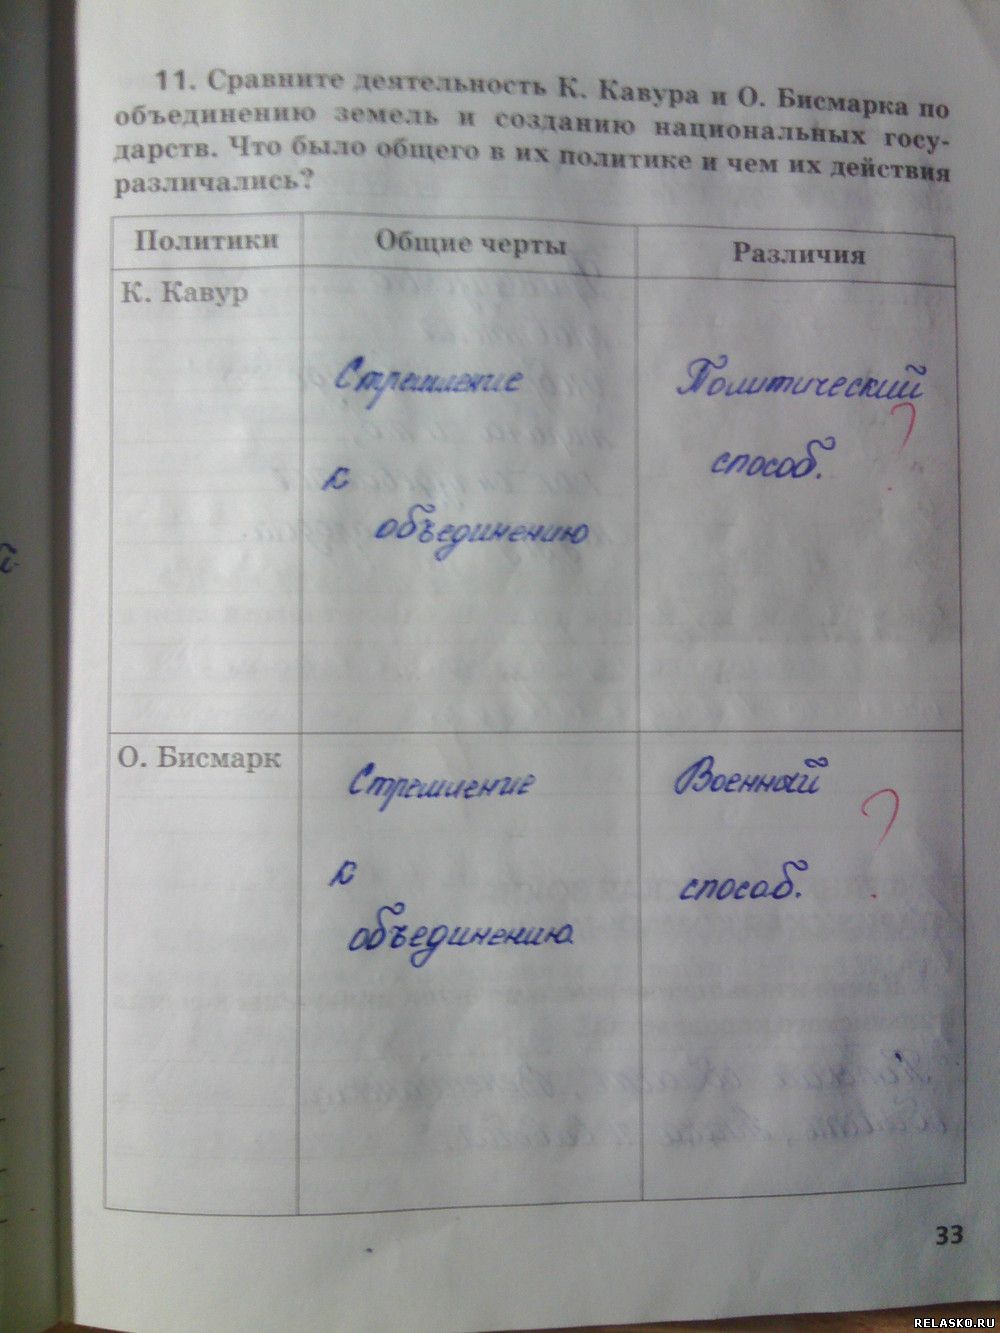 11. Сравните деятельность К. Кавура и О. Бисмарка по
объединению земель и созданию национальных госу-
дарств. Что было общего в их политике и чем их действия
различались?
Политики
Общие черты
Различия
К. Кавур
Стремление
к
объединению
Политический
?
способ.
О. Бисмарк
Стремление
к
объединению.
Военный
?
способ.
33
RELASKO.RU